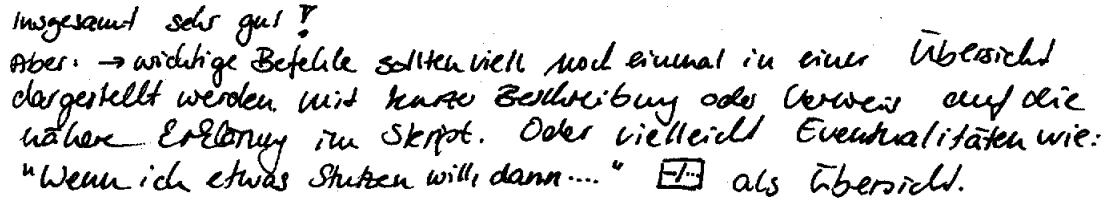 Insgesamt sehr gut!
Aber: → wichtige Befehle sollten viell noch einmal in einer Übersicht
dargestellt werden mit kurzer Beschreibung oder Verweis auf die
nähere Erklärung im Skript. Oder vielleicht Eventualitäten wie:
"Wenn ich etwas Stutzen will, dann...." als Übersicht.